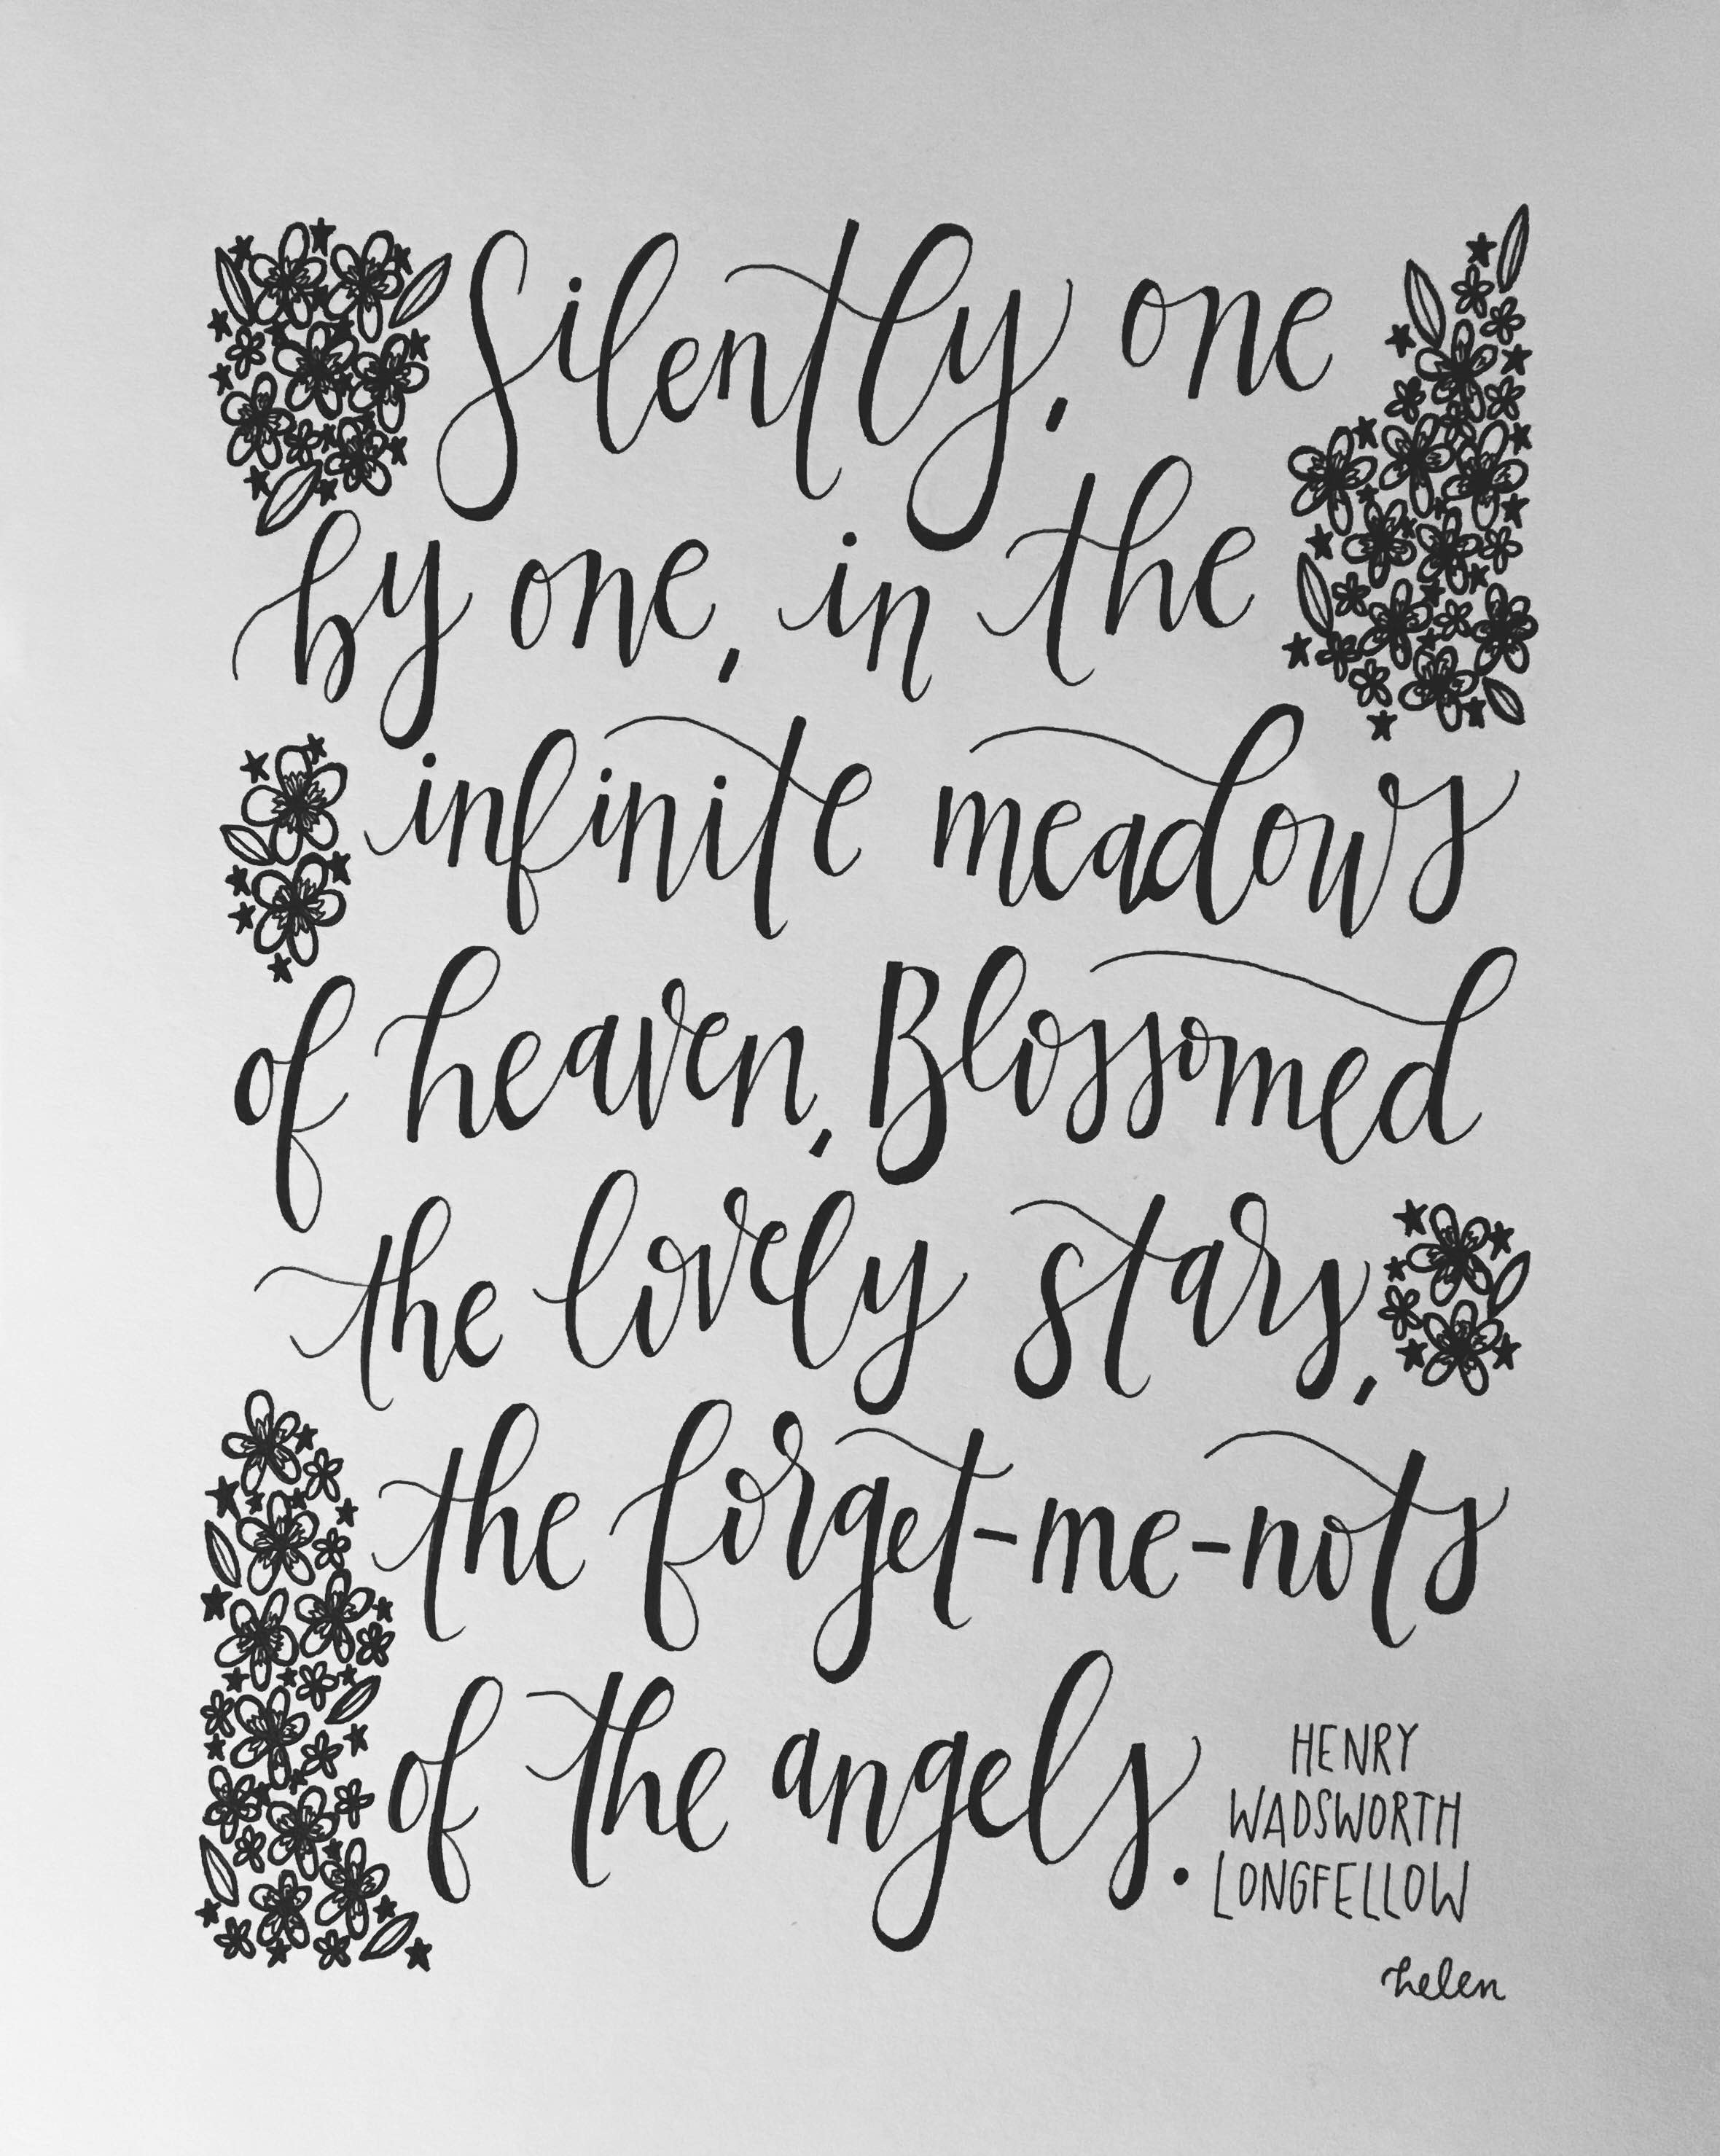 Silently, one
by one, in the
infinite meadows
of heaven, Blossomed
the lovely stars,
the forget-me-nots
of the angels.
HENRY
WADSWORTH
LONGFELLOW
helen